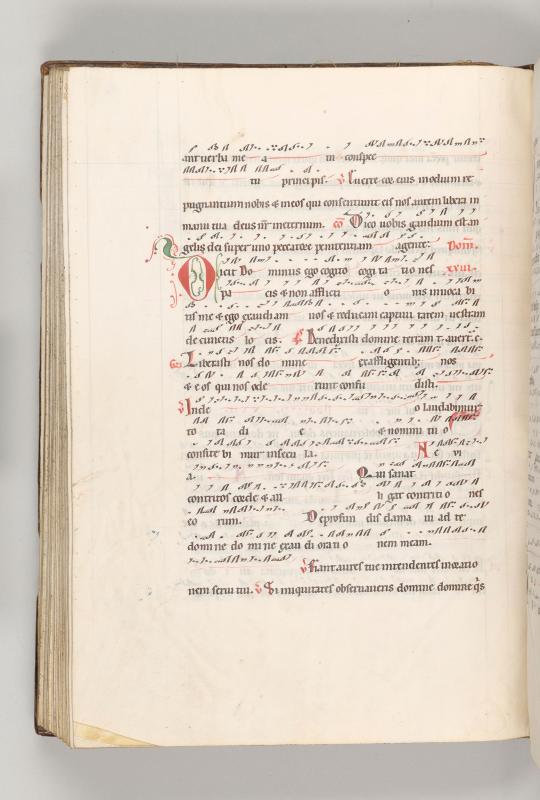 ant verba me a in conspec
tu principis. v fuerte cor eius in odium re
pugnantium nobis & in eos qui consentiunt eis nos autem libera in
manu tua deus nr in eternum. co Dico vobis gaudium est an
gelis dei super uno peccatore penitentiam agente: Dom.
Dicit Do minus ego cogito cogi ta tio nes xxiii.
pa cis & non afflicti o nis invoca bi
tis me & ego exaudiam vos & reducam captivi tatem vestram
de cunctis lo cis. Benedixisti domine terram t. avert.
Liberasti nos do mine ex affligentib; nos
& e os qui nos ode runt confu disti.
v In deo laudabimur
to ta di e & nomini tu o
confite bi mur in secu la. Ae vi
a. Qui sanat
contritos corde & alli gat contriti o nes
eo rum. De profun dis clama vi ad te
domine do mi ne exau di orati o nem meam.
v Fiant aures tue intendentes in oratio
nem servi tui. v Si iniquitates observaveris domine domine q̄s